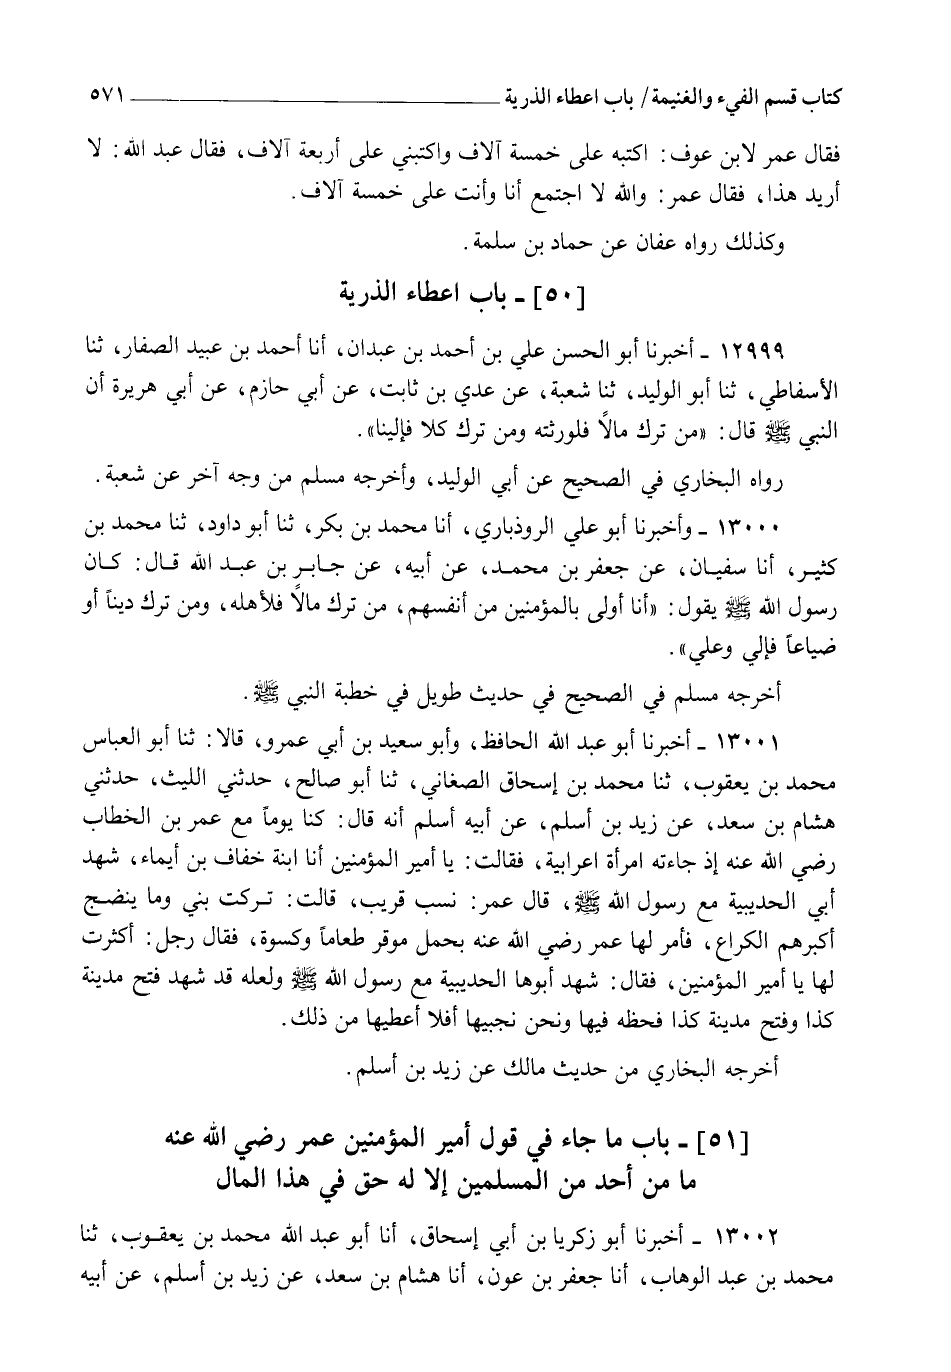 كتاب قسم الفيء والغنيمة/ باب اعطاء الذرية ٥٧١
فقال عمر لابن عوف: اكتبه على خمسة آلاف واكتبني على أربعة آلاف، فقال عبد الله: لا
أريد هذا، فقال عمر: والله لا اجتمع أنا وأنت على خمسة آلاف.
وكذلك رواه عفان عن حماد بن سلمة.
[٥٠] ـ باب اعطاء الذرية
١٢٩٩٩ ـ أخبرنا أبو الحسن علي بن أحمد بن عبدان، أنا أحمد بن عبيد الصفار، ثنا
الأسفاطي، ثنا أبو الوليد، ثنا شعبة، عن عدي بن ثابت، عن أبي حازم، عن أبي هريرة أن
النبي ﷺ قال: «من ترك مالاً فلورثته ومن ترك كلا فإلينا».
رواه البخاري في الصحيح عن أبي الوليد، وأخرجه مسلم من وجه آخر عن شعبة.
١٣٠٠٠ ـ وأخبرنا أبو علي الروذباري، أنا محمد بن بكر، ثنا أبو داود، ثنا محمد بن
كثير، أنا سفيان، عن جعفر بن محمد، عن أبيه، عن جابر بن عبد الله قال: كان
رسول الله ﷺ يقول: «أنا أولى بالمؤمنين من أنفسهم، من ترك مالاً فلأهله، ومن ترك ديناً أو
ضياعاً فإلي وعلي».
أخرجه مسلم في الصحيح في حديث طويل في خطبة النبي ﷺ.
١٣٠٠١ ـ أخبرنا أبو عبد الله الحافظ، وأبو سعيد بن أبي عمرو، قالا: ثنا أبو العباس
محمد بن يعقوب، ثنا محمد بن إسحاق الصغاني، ثنا أبو صالح، حدثني الليث، حدثني
هشام بن سعد، عن زيد بن أسلم، عن أبيه أسلم أنه قال: كنا يوماً مع عمر بن الخطاب
رضي الله عنه إذ جاءته امرأة اعرابية، فقالت: يا أمير المؤمنين أنا ابنة خفاف بن أيماء، شهد
أبي الحديبية مع رسول الله ﷺ، قال عمر: نسب قريب، قالت: تركت بني وما ينضج
أكبرهم الكراع، فأمر لها عمر رضي الله عنه بحمل موقر طعاماً وكسوة، فقال رجل: أكثرت
لها يا أمير المؤمنين، فقال: شهد أبوها الحديبية مع رسول الله ﷺ ولعله قد شهد فتح مدينة
كذا وفتح مدينة كذا فحظه فيها ونحن نجبيها أفلا أعطيها من ذلك.
أخرجه البخاري من حديث مالك عن زيد بن أسلم.
[٥١] ـ باب ما جاء في قول أمير المؤمنين عمر رضي الله عنه
ما من أحد من المسلمين إلا له حق في هذا المال
١٣٠٠٢ ـ أخبرنا أبو زكريا بن أبي إسحاق، أنا أبو عبد الله محمد بن يعقوب، ثنا
محمد بن عبد الوهاب، أنا جعفر بن عون، أنا هشام بن سعد، عن زيد بن أسلم، عن أبيه